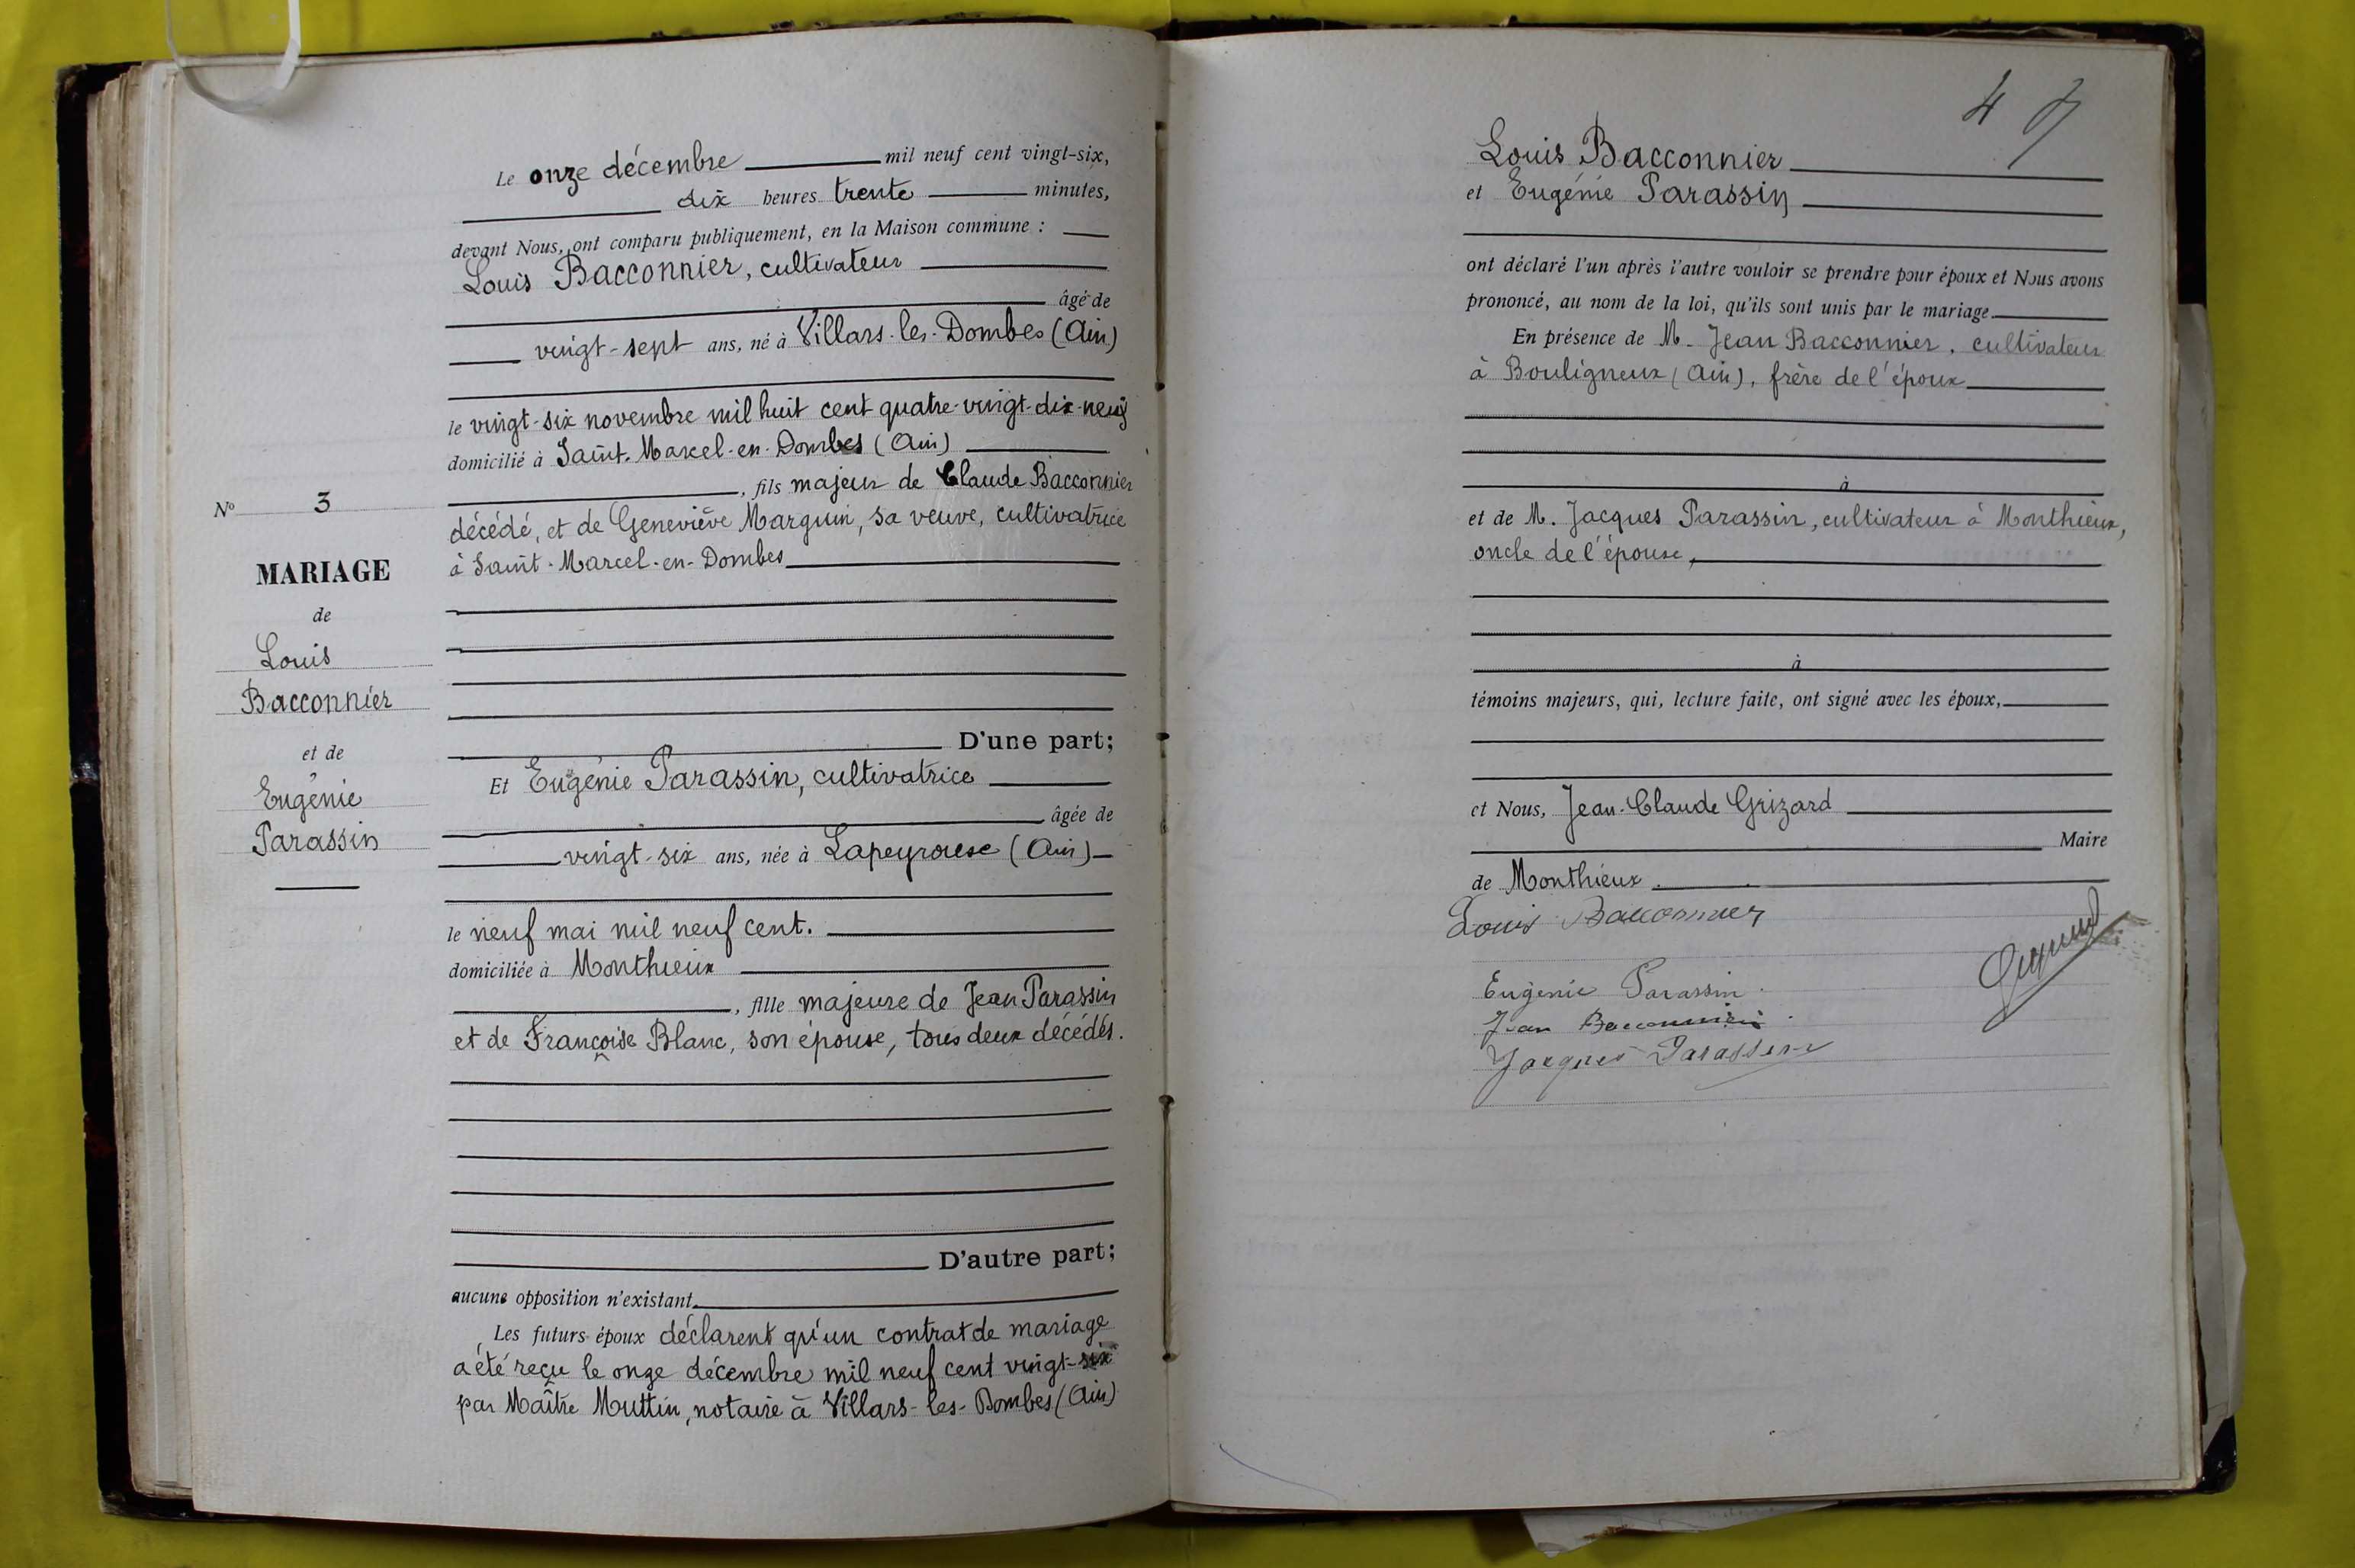 Le onze décembre mil neuf cent vingt-six,
dix heures trente minutes,
devant Nous, ont comparu publiquement, en la Maison commune :
Louis Bacconnier, cultivateur
âgé de
vingt-sept ans, né à Villars-les-Dombes (Ain)
le vingt-six novembre mil huit cent quatre-vingt-dix-neuf
domicilié à Saint-Marcel-en-Dombes (Ain)
, fils majeur de Claude Bacconnier
décédé, et de Geneviève Marguin, sa veuve, cultivatrice
à Saint-Marcel-en-Dombes
No 3
MARIAGE
de
Louis
Bacconnier
et de
Eugénie
Parassin
D'une part;
Et Eugénie Parassin, cultivatrice
âgée de
vingt-six ans, née à Lapeyrouse (Ain)
le neuf mai mil neuf cent.
domiciliée à Monthieux
, fille majeure de Jean Parassin
et de Françoise Blanc, son épouse, tous deux décédés.
D'autre part;
aucune opposition n'existant.
Les futurs époux déclarent qu'un contrat de mariage
a été reçu le onze décembre mil neuf cent vingt-six
par Maître Muttin, notaire à Villars-les-Dombes (Ain)
4
Louis Bacconnier
et Eugénie Parassin
ont déclaré l'un après l'autre vouloir se prendre pour époux et Nous avons
prononcé, au nom de la loi, qu'ils sont unis par le mariage.
En présence de M. Jean Bacconnier, cultivateur
à Bouligneux (Ain), frère de l'époux
à
et de M. Jacques Parassin, cultivateur à Monthieux,
oncle de l'épouse,
à
témoins majeurs, qui, lecture faite, ont signé avec les époux,
et Nous, Jean-Claude Grizard
Maire
de Monthieux.
Louis Bacconnier
Eugenie Parassin
Jean Bacconnier
Jacques Parassin